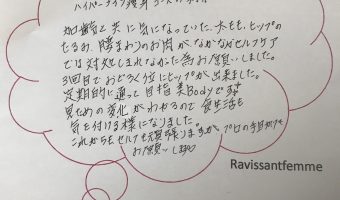 ハイパーナイフ痩身コース
加齢と共に気になっていた、太もも、ヒップの
たるみ、膝まわりのお肉が、なかなかセルフケア
では対処しきれなかった為お願いしました。
3回目でおどろく位にヒップが出来ました。
定期的に通って目指美Bodyです
見ための変化がわかるので食生活も
気を付ける様になりました。
これからもセルフも頑張りますが、プロの手助けを
お願いします
Ravissantfemme